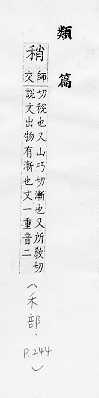 類篇
稍
師切稅也又山巧切漸也又所教切
交說文出物有漸也文一重音二
(禾部.
P.244)